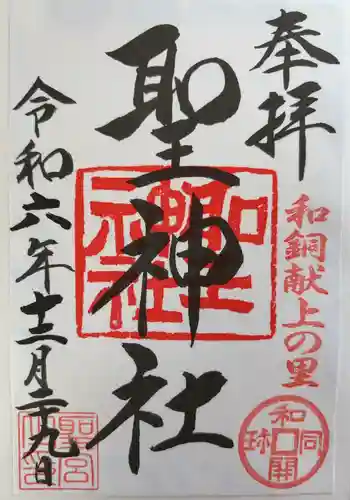 奉拝
和銅献上の里
聖神社
聖神社
和同開珎
令和六年十二月二十九日